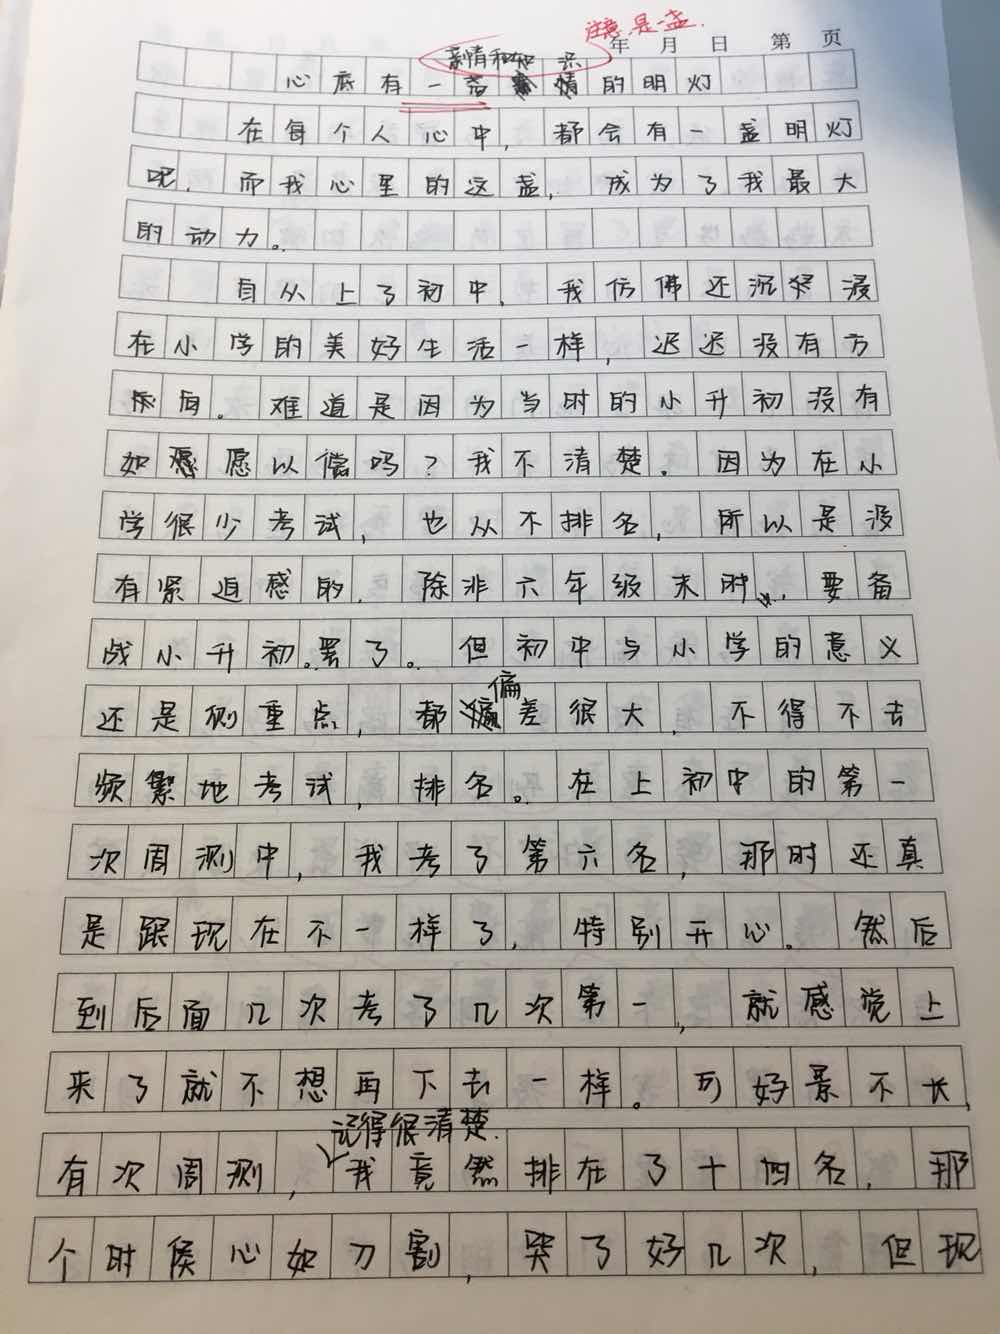 注意,是一盏.
年 月 日 第 页
亲情和知识
心底有一盏的明灯
在每个人心中,都会有一盏明灯
呢,而我心里的这盏,成为了我最大
的动力。
自从上了初中,我仿佛还沉浸
在小学的美好生活一样,迟迟没有方
向。难道是因为当时的小升初没有
如愿以偿吗?我不清楚。因为在小
学很少考试,也从不排名,所以是没
有紧迫感的,除非六年级末时,要备
战小升初。罢了。但初中与小学的意义
还是侧重点,都偏差很大,不得不去
频繁地考试,排名。在上初中的第一
次周测中,我考了第六名,那时还真
是跟现在不一样了,特别开心。然后
到后面几次考了几次第一,就感觉上
来了就不想再下去一样。可好景不长,
记得很清楚.
有次周测,我竟然排在了十四名,那
个时侯心如刀割,哭了好几次,但现